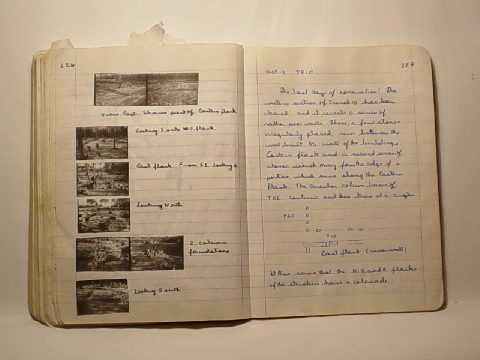 226
View East. Western part of Eastern flank
Looking S onto flank.
East flank. From S E looking
Looking North
2. column
foundations
Looking South
227
Oct 13 TR10
The last day of excavation! The
western section of Trench 10 has been
cleared, and it reveals a series of
rather poor walls. These, a few stones
irregularly placed, run between the
well built NS wall of the building's
Eastern flank and a second series of
stones which may form the edge of a
portico which runs along the Eastern
flank. The circular column bases of
T6E continue and then turn at a angle
T6E
T10
East flank
It thus seems that the N, S, and E flanks
of the structure have a colonade